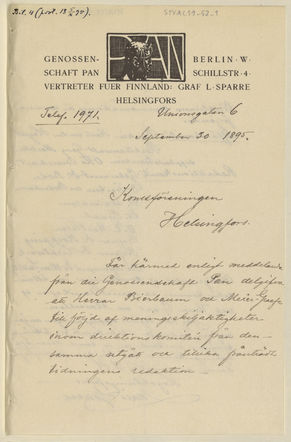 Bil. 4 (prot. 13
PAN
GENOSSENSCHAFT PAN
BERLIN·W·
SCHILLSTR·4·
VERTRETER FUER FINNLAND: GRAF L·SPARRE
HELSINGFORS
Telef. 1971.
Unionsgatan 6
September 30 1895.
Konstföreningen
Helsingfors.
Får härmed enligt meddelande
från die Genossenschaft Pan delgifva
att Herrar Bierbaum och Meier-Graefe
till följd af meningsskiljaktigheter
inom direktionskomitén från den-
samma utgått och tillika frånträdt
tidningens redaktion